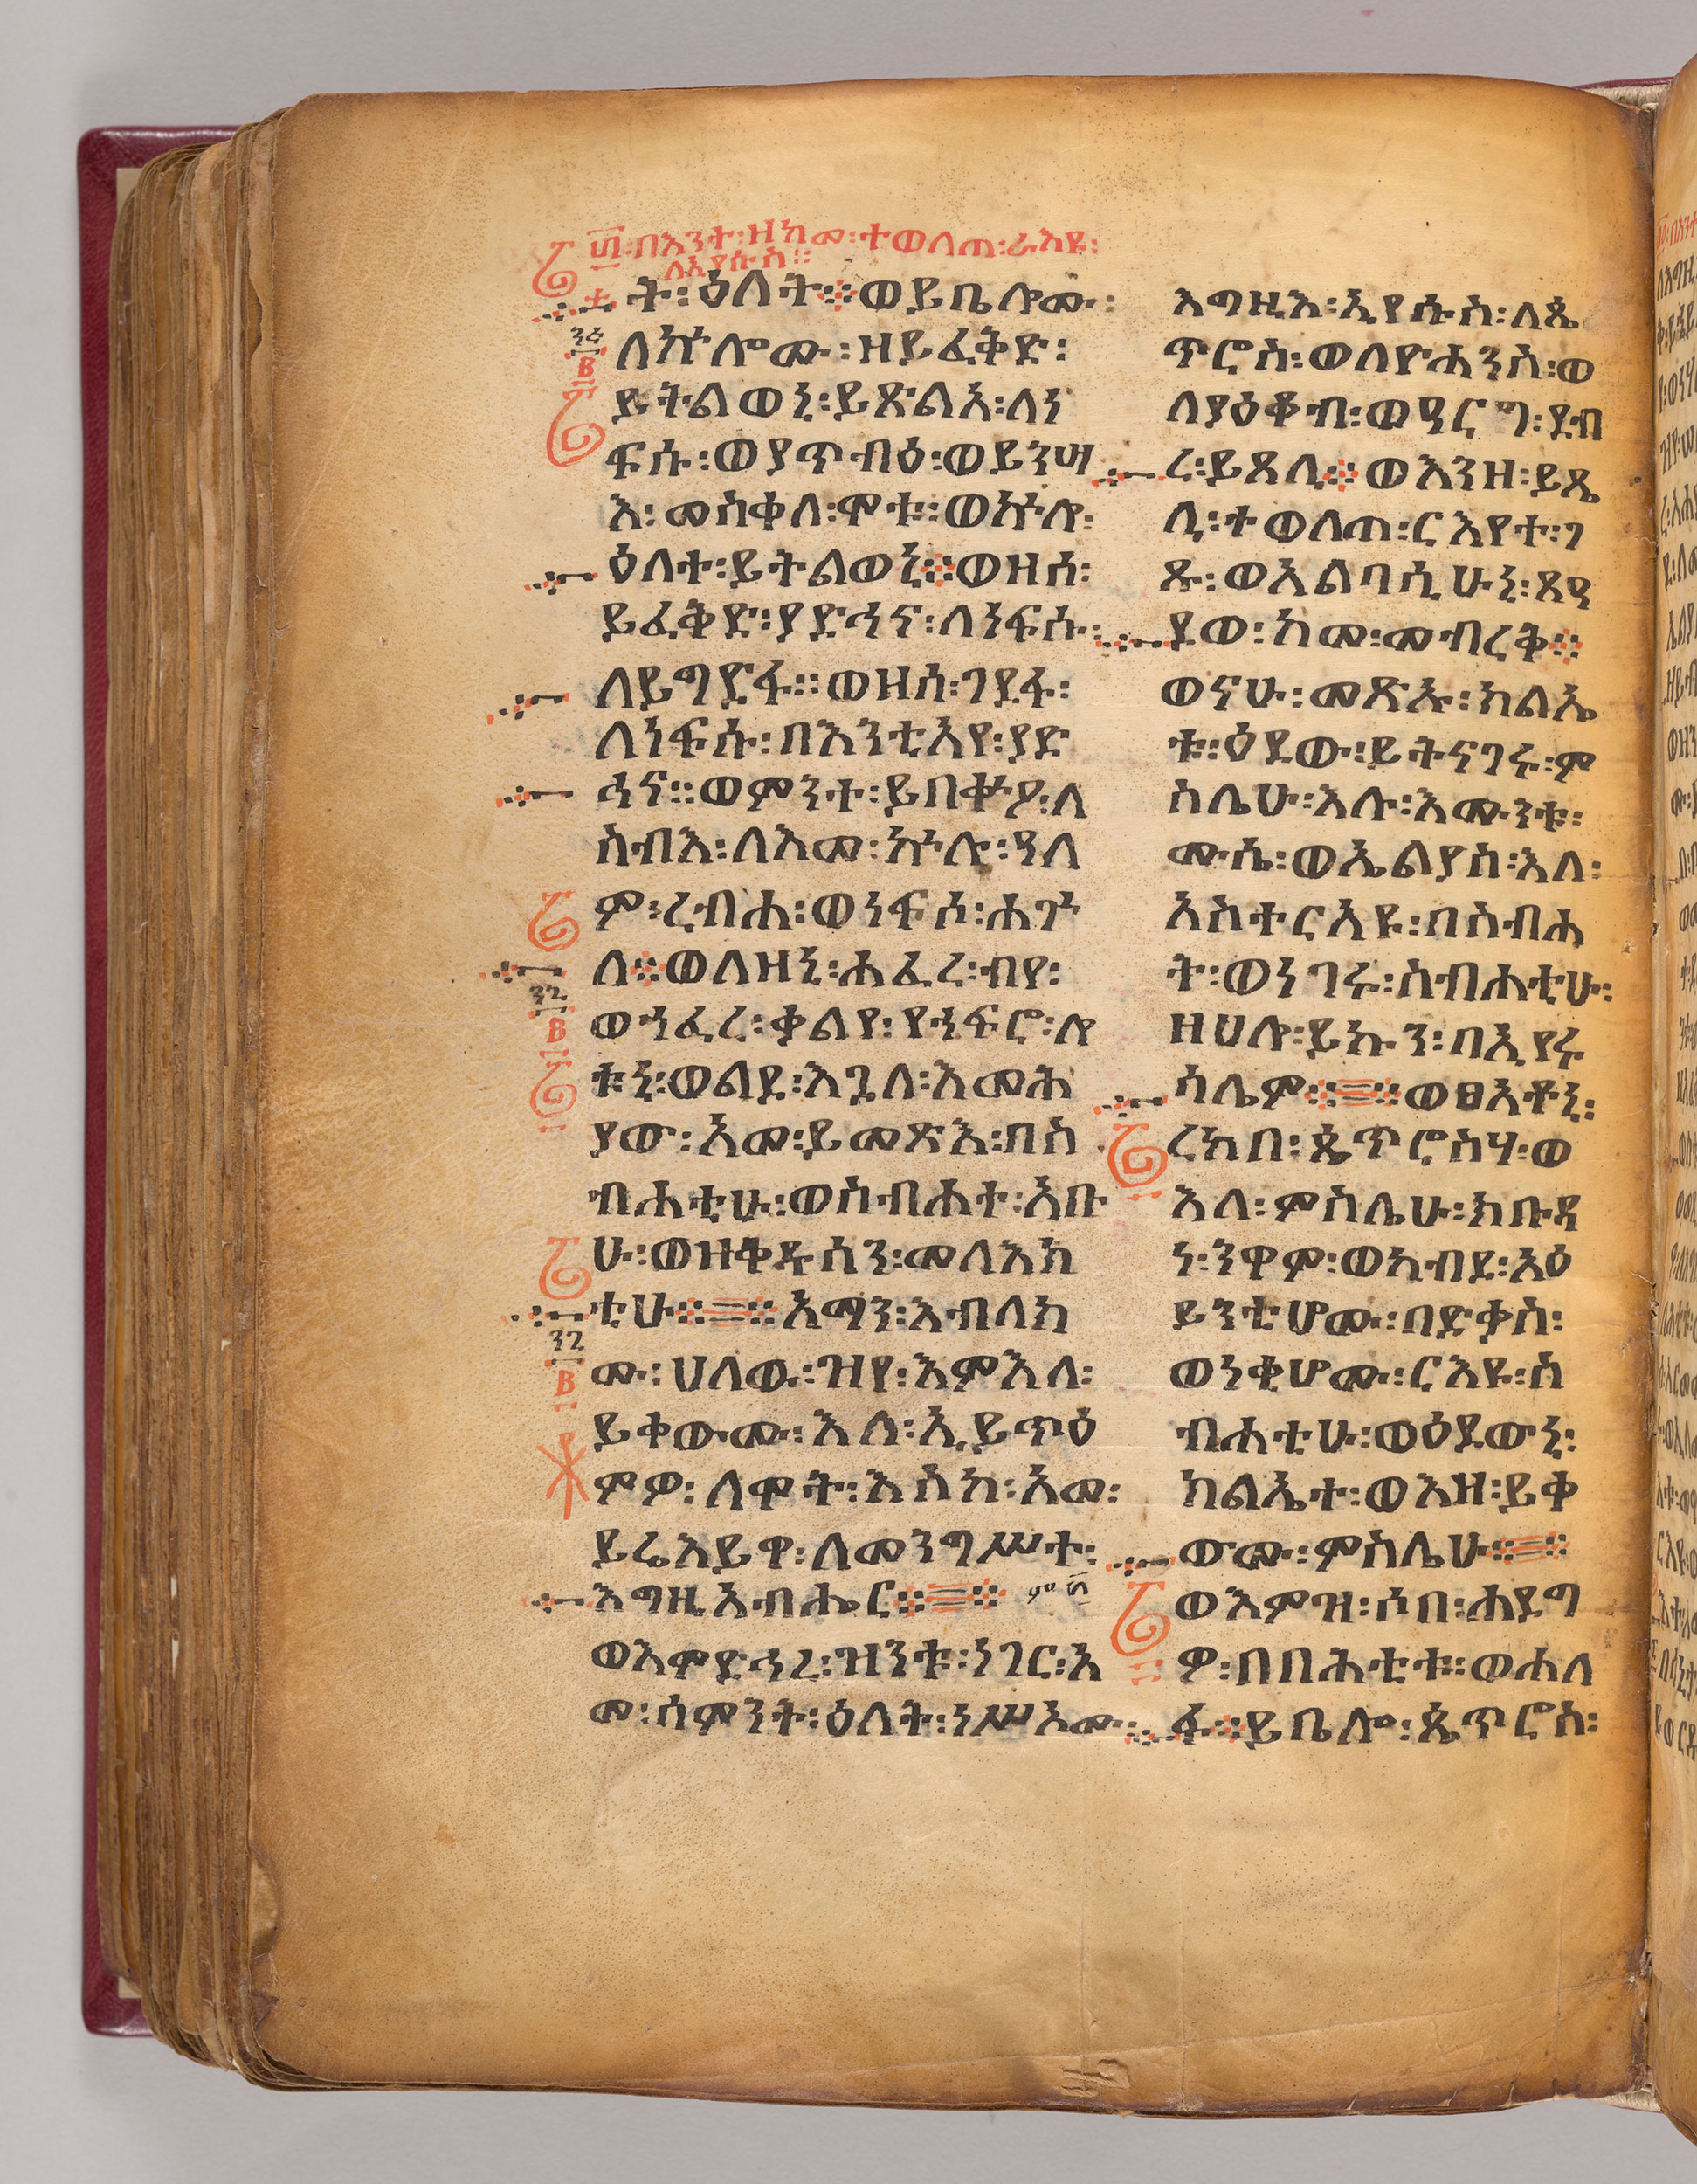 ፴፡በእንተ፡ዘከመ፡ተወለጠ፡ራእዩ፡
ለኢየሱስ፡፡
ት፡ዕለት፨ወይቤሎሙ፡
ለኵሎሙ፡ዘይፈቅድ፡
ይትልወኒ፡ይጽልአ፡ለነ
ፍሱ፡ወያጥብዕ፡ወይንሣ
እ፡መስቀለ፡ሞቱ፡ወኵሎ፡
ዕለተ፡ይትልወኒ፨ወዘሰ፡
ይፈቅድ፡ያድኅና፡ለነፍሱ፡
ለይግድፋ፡፡ወዘሰ፡ገደፋ፡
ለነፍሱ፡በእንቲአየ፡ያድ
ኅና፡፡ወምንተ፡ይበቍዖ፡ለ
ስብእ፡ለእመ፡ኵሉ፡ዓለ
ም፡ረብሐ፡ወነፍሶ፡ሐጐ
ለ፨ወለዘኒ፡ሐፈረ፡ብየ፡
ወኀፈረ፡ቃልየ፡የኀፍሮ፡ሎ
ቱኒ፡ወልደ፡እጓለ፡እመሕ
ያው፡አመ፡ይመጽእ፡በስ
ብሐቲሁ፡ወስብሐተ፡አቡ
ሁ፡ወዝቅዱሳን፡መላእክ
ቲሁ፨=፨አማን፡እብለክ
ሙ፡ሀለዉ፡ዝየ፡እምእለ፡
ይቀውሙ፡እለ፡ኢይጥዕ
ምዎ፡ለሞት፡እስከ፡አመ፡
ይሬእይዋ፡ለመንግሥተ፡
እግዚአብሔር፨=፨
ወእምድኅረ፡ዝንቱ፡ነገር፡አ
መ፡ሳምንት፡ዕለት፡ነሥኦሙ፡
እግዚእ፡ኢየሱስ፡ለጴ
ጥሮስ፡ወለዮሐንስ፡ወ
ለያዕቆብ፡ወዓርገ፡ደብ
ረ፡ይጸሊ፨ወእንዘ፡ይጼ
ሊ፡ተወለጠ፡ርእየተ፡ገ
ጹ፡ወአልባሲሁኒ፡ጸዓ
ደወ፡ከመ፡መብረቅ፨
ወናሁ፡መጽኡ፡ክልኤ
ቱ፡ዕደው፡ይትናገሩ፡ም
ስሌሁ፡እሉ፡እሙንቱ፡
ሙሴ፡ወኤልያስ፡እለ፡
አስተርአዩ፡በስብሐ
ት፡ወነገሩ፡ስብሐቲሁ፡
ዘሀሎ፡ይኩን፡በኢየሩ
ሳሌም፨=፨ወፀአቶኒ፡
ረከበ፡ጴጥሮስሃ፡ወ
እለ፡ምስሌሁ፡ክቡዳ
ነ፡ንዋም፡ወአብደ፡አዕ
ይንቲሆሙ፡በድቃስ፡
ወነቂሆሙ፡ርእዩ፡ስ
ብሐቲሁ፡ወዕደውኒ፡
ክልኤተ፡ወእዘ፡ይቀ
ውሙ፡ምስሌሁ፨=፨
ወእምዝ፡ሶበ፡ሐደግ
ዎ፡በበሕቲቱ፡፡ወሐለ
ፉ፨ይቤሎ፡ጴጥሮስ፡